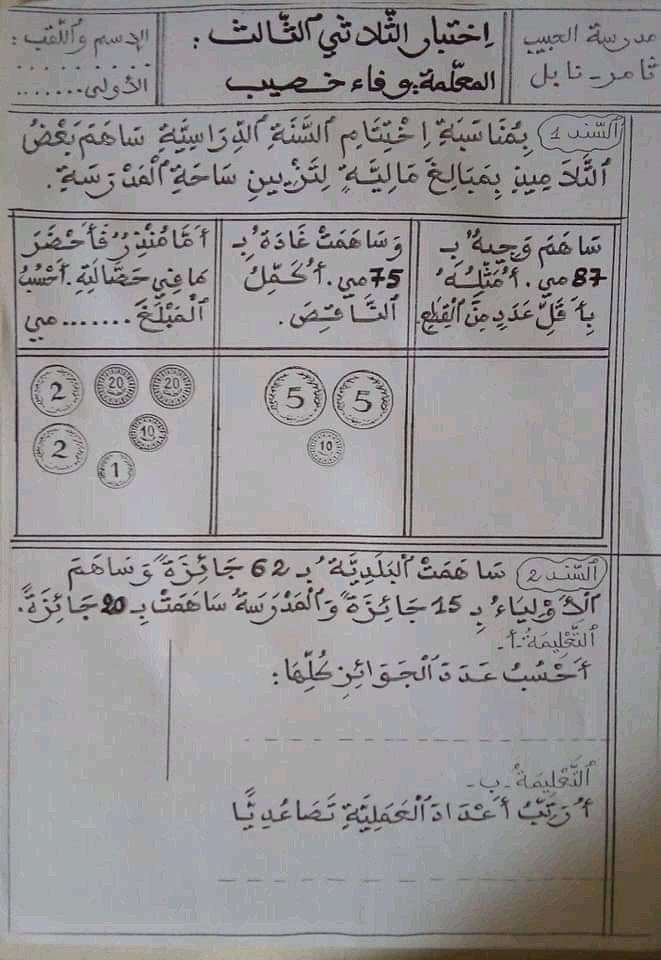 مدرسة الحبيب
ثامر - نابل
إختبار الثّلاثي الثّالث :
المعلّمة: وفاء خصيب
الإسم واللّقب :
. . . . . . . . .
الأولى.......
السّند 1 بِمُنَاسَبَةِ اِخْتِتَامِ السَّنَةِ الدِّرَاسِيَّةِ سَاهَمَ بَعْضُ
التَّلاَمِيذِ بِمَبَالِغَ مَالِيَّةٍ لِتَزْيِينِ سَاحَةِ الْمَدْرَسَةِ.
سَاهَمَ وَجِيهٌ بِـ
87 مي. أُمَثِّلُهُ
بِأَقَلِّ عَدَدٍ مِنَ الْقِطَعِ.
وَسَاهَمَتْ غَادَةُ بِـ
75 مي. أُكَمِّلُ
النَّاقِصَ.
أَمَّا مُنْذِرٌ فَأَحْضَرَ
مَا فِي حَصَّالَتِهِ. أَحْسُبُ
الْمَبْلَغَ....... مي
5 5
10
2 20 20
2 10
1
السّند 2 سَاهَمَتْ الْبَلَدِيَّةُ بِـ 62 جَائِزَةً وَسَاهَمَ
الأَوْلِيَاءُ بِـ 15 جَائِزَةً وَالْمَدْرَسَةُ سَاهَمَتْ بِـ 20 جَائِزَةً.
التَّعْلِيمَةُ -أ-
أَحْسُبُ عَدَدَ الْجَوَائِزِ كُلِّهَا :
التَّعْلِيمَةُ -ب-
أُرَتِّبُ أَعْدَادَ الْعَمَلِيَّةِ تَصَاعُدِيًّا